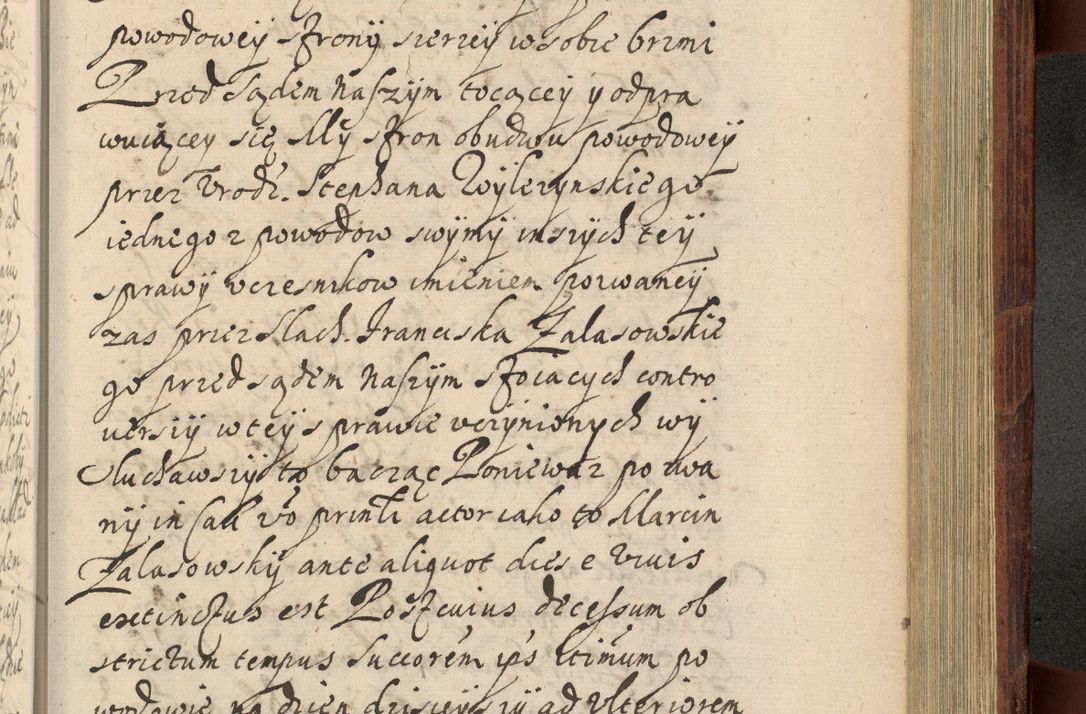 powodowey strony szerzey w sobie brzmi
Przed Sądem naszym tocącey y odpra
wuiącey się My stron obudwu powodowey
przez Vrodz. Stephana Wylezynskiego
iednego z powodow swymy inszych tey
sprawy vczesnikow imieniem pozwaney
zas przez Slach. Franciska Zalasowskie
go przed sądem naszym stoiacych contro
uersiy w tey sprawie vczynionych wy
Słuchawszy to bacząc Poniewaz pozwa
ny in Causa vo prinli actor iako to Marcin
Zalasowsky ante aliquot dies e viuis
extinctus est Post cuius decessum ob
strictum tempus Succorem ips ltimum po
wodowie na dzien dzisieyszy ad Vlteriorem